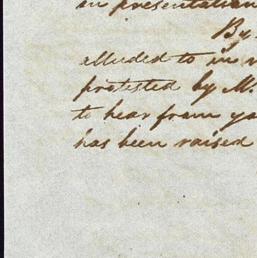 in presentation
By
alluded to in
protested by M.
to hear from
has been raised